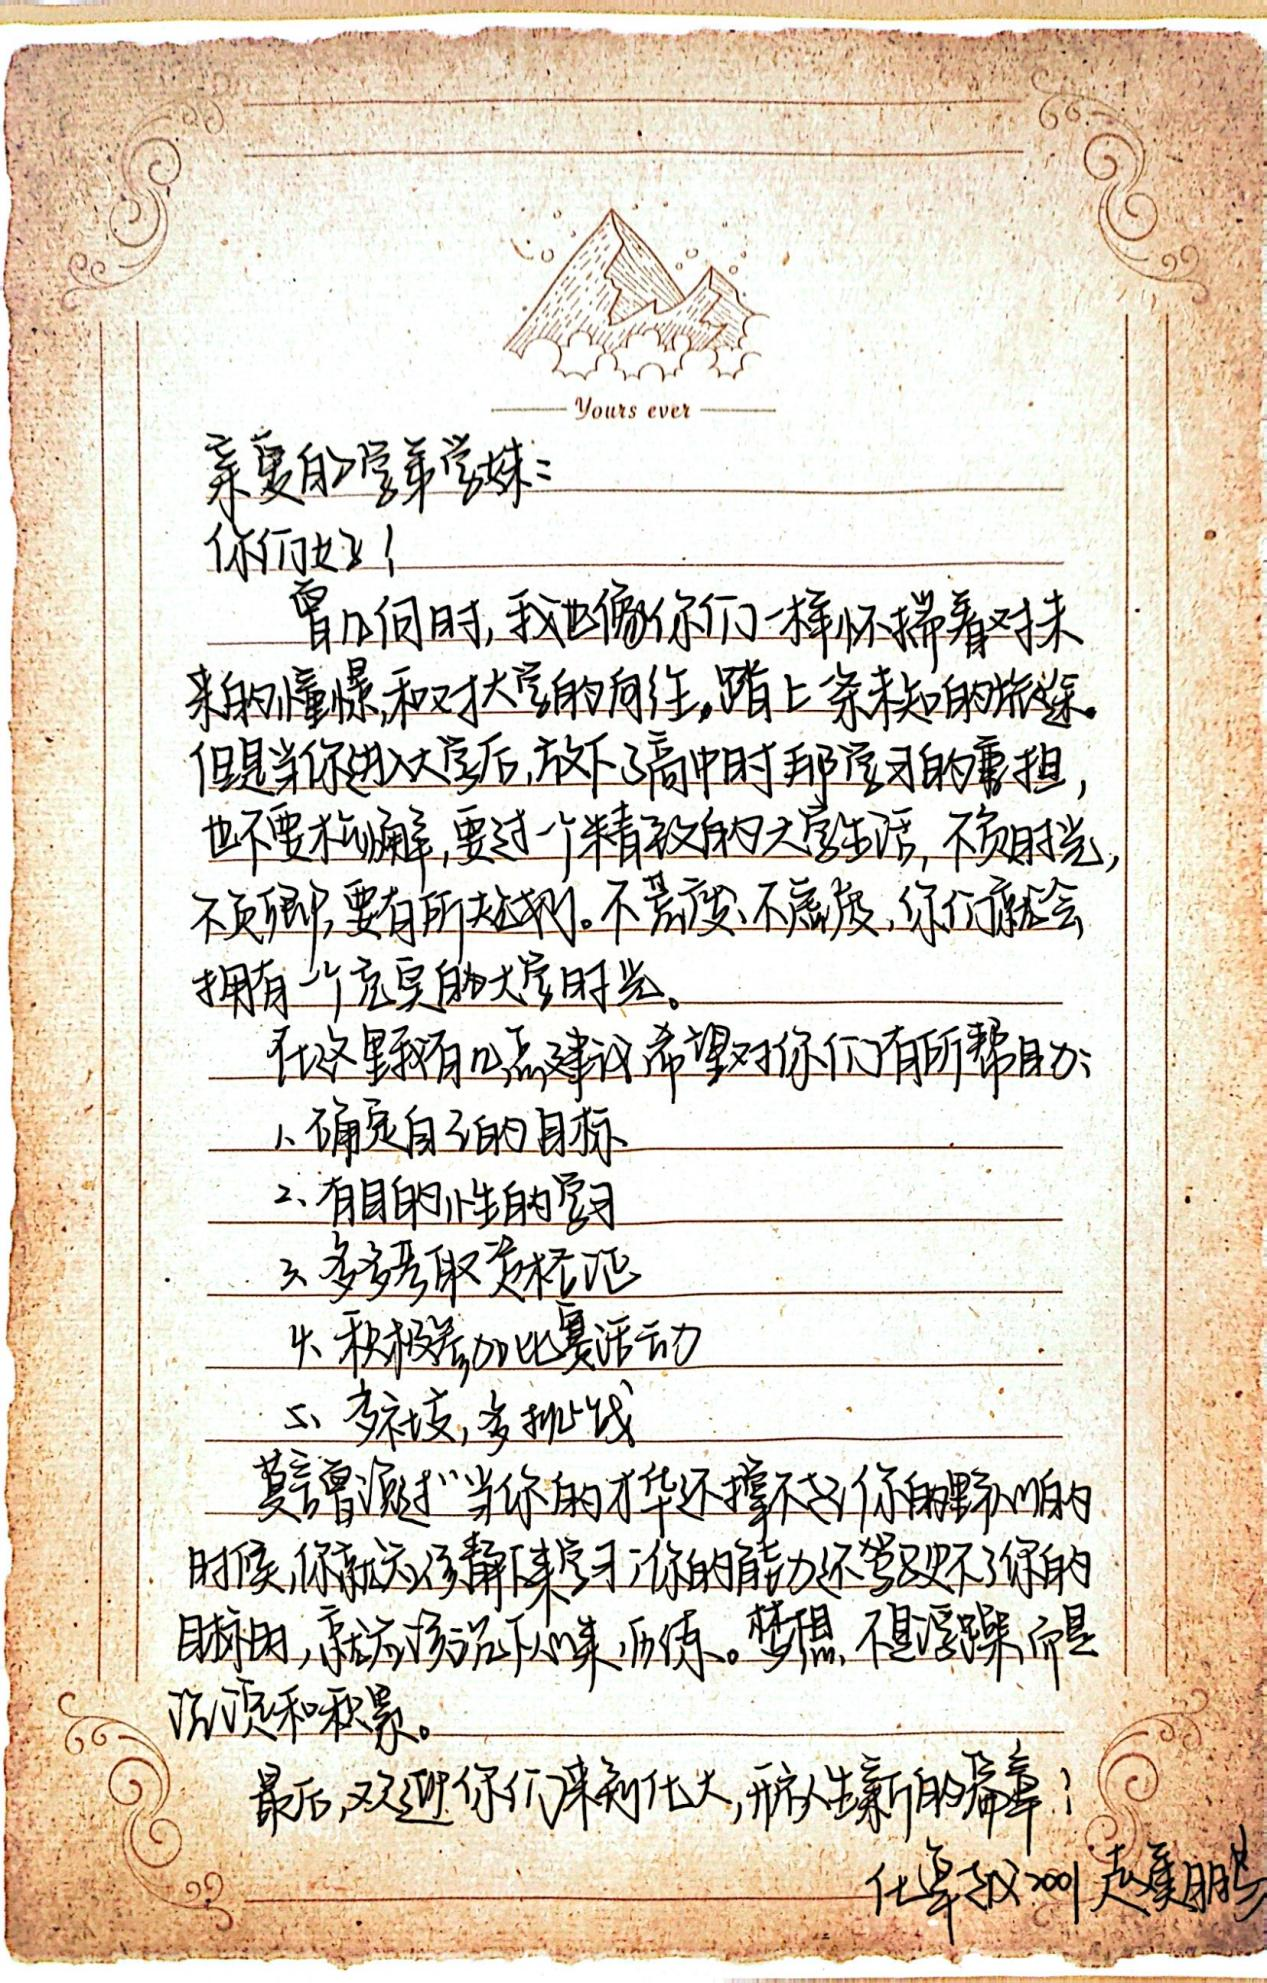 Yours ever
亲爱的学弟学妹：
你们好！
曾几何时，我也像你们一样怀揣着对未
来的憧憬，和对大学的向往，踏上一条未知的旅途。
但是当你进入大学后，放下了高中时那学习的重担，
也不要松懈，要过一个精致的大学生活，不负时光，
不负卿，要有所规划。不荒废、不虚度，你们就会
拥有一个充实的大学时光。
在这里我有几点建议希望对你们有所帮助：
1、确定自己的目标
2、有目的性的学习
3、多多考取资格证
4、积极参加比赛活动
5、多社交，多挑战
莫言曾说过"当你的才华还撑不起你的野心的
时候，你就应该静下来学习；你的能力还驾驭不了你的
目标时，就应该沉下心来，历练。梦想，不是浮躁，而是
沉淀和积累。
最后，欢迎你们来到化大，开启人生新的篇章！
2001 赵